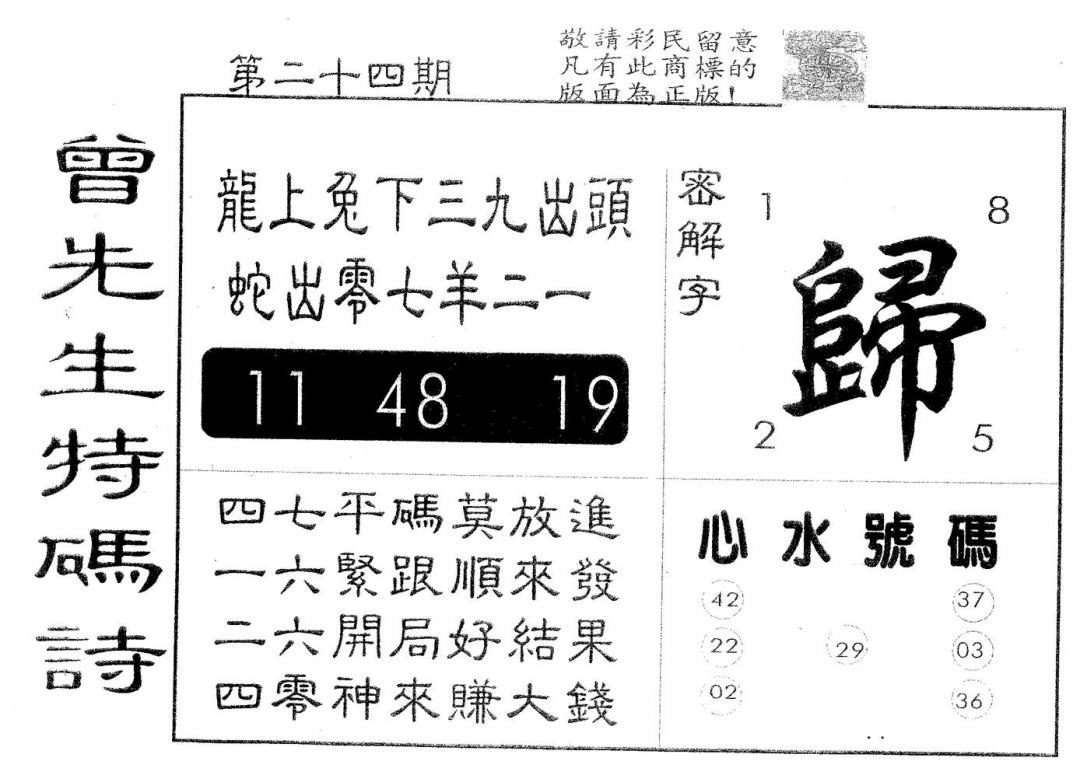 第二十四期
敬請彩民留意
凡有此商標的
版面為正版!
曾先生特碼詩
龍上兔下三九出頭
蛇出零七羊二一
11 48 19
密解字
1 8
歸
2 5
四七平碼莫放進
一六緊跟順來發
二六開局好結果
四零神來賺大錢
心水號碼
42 37
22 29 03
02 36